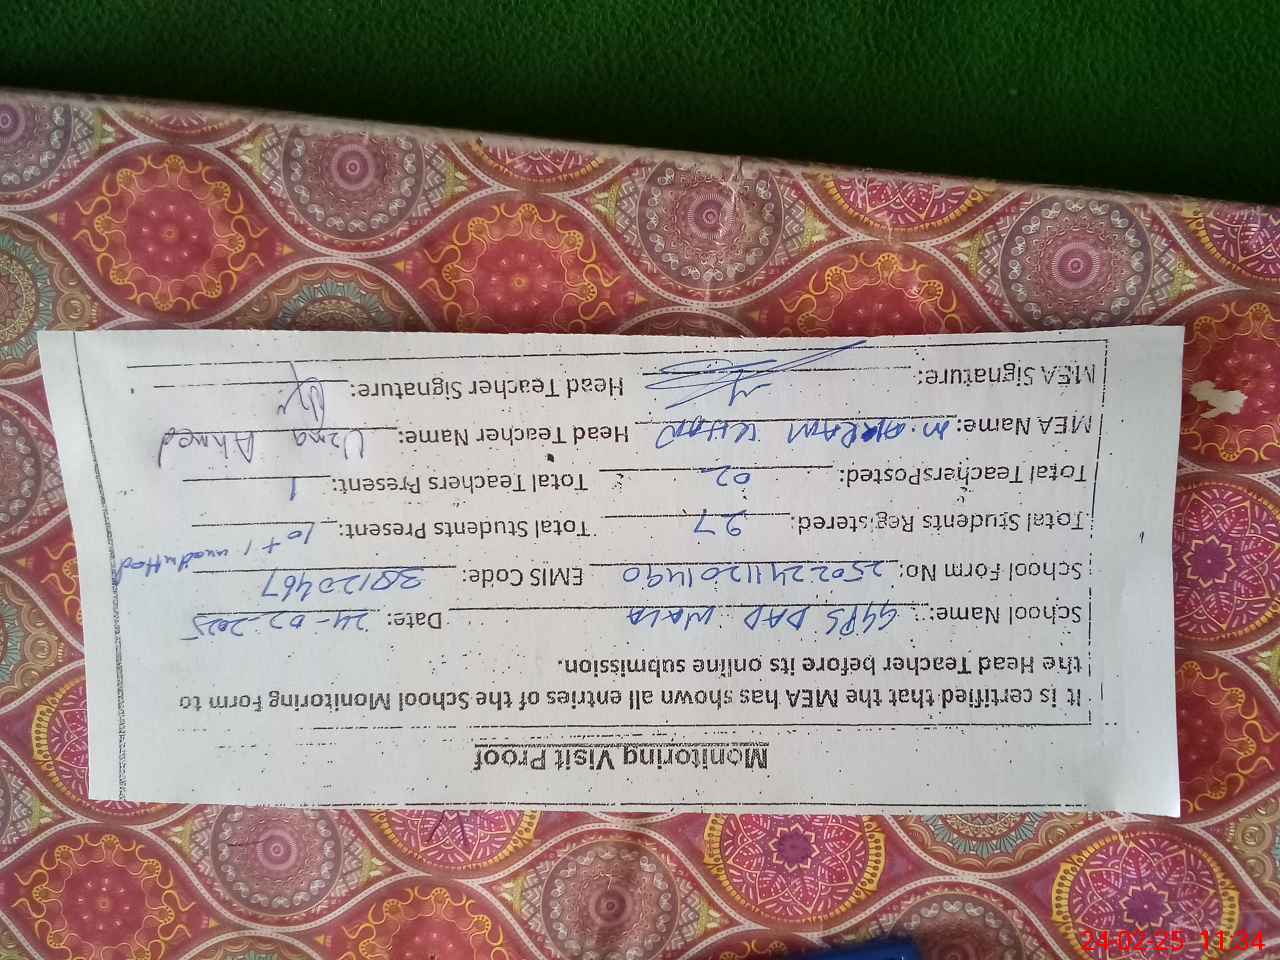 Monitoring Visit Proof
It is certified that the MEA has shown all entries of the School Monitoring Form to
the Head Teacher before its online submission.
School Name: GGPS DAD WALA Date: 24-02-2025
School Form No: 25022411201490 EMIS Code: 38120467
Total Students Registered: 27 Total Students Present: 10 + 1
Total TeachersPosted: 02 Total Teachers Present: 1
MEA Name: M. AKRAM KHAN Head Teacher Name: Uzma Ahmed
MEA Signature: Head Teacher Signature:
24-02-25 11:34